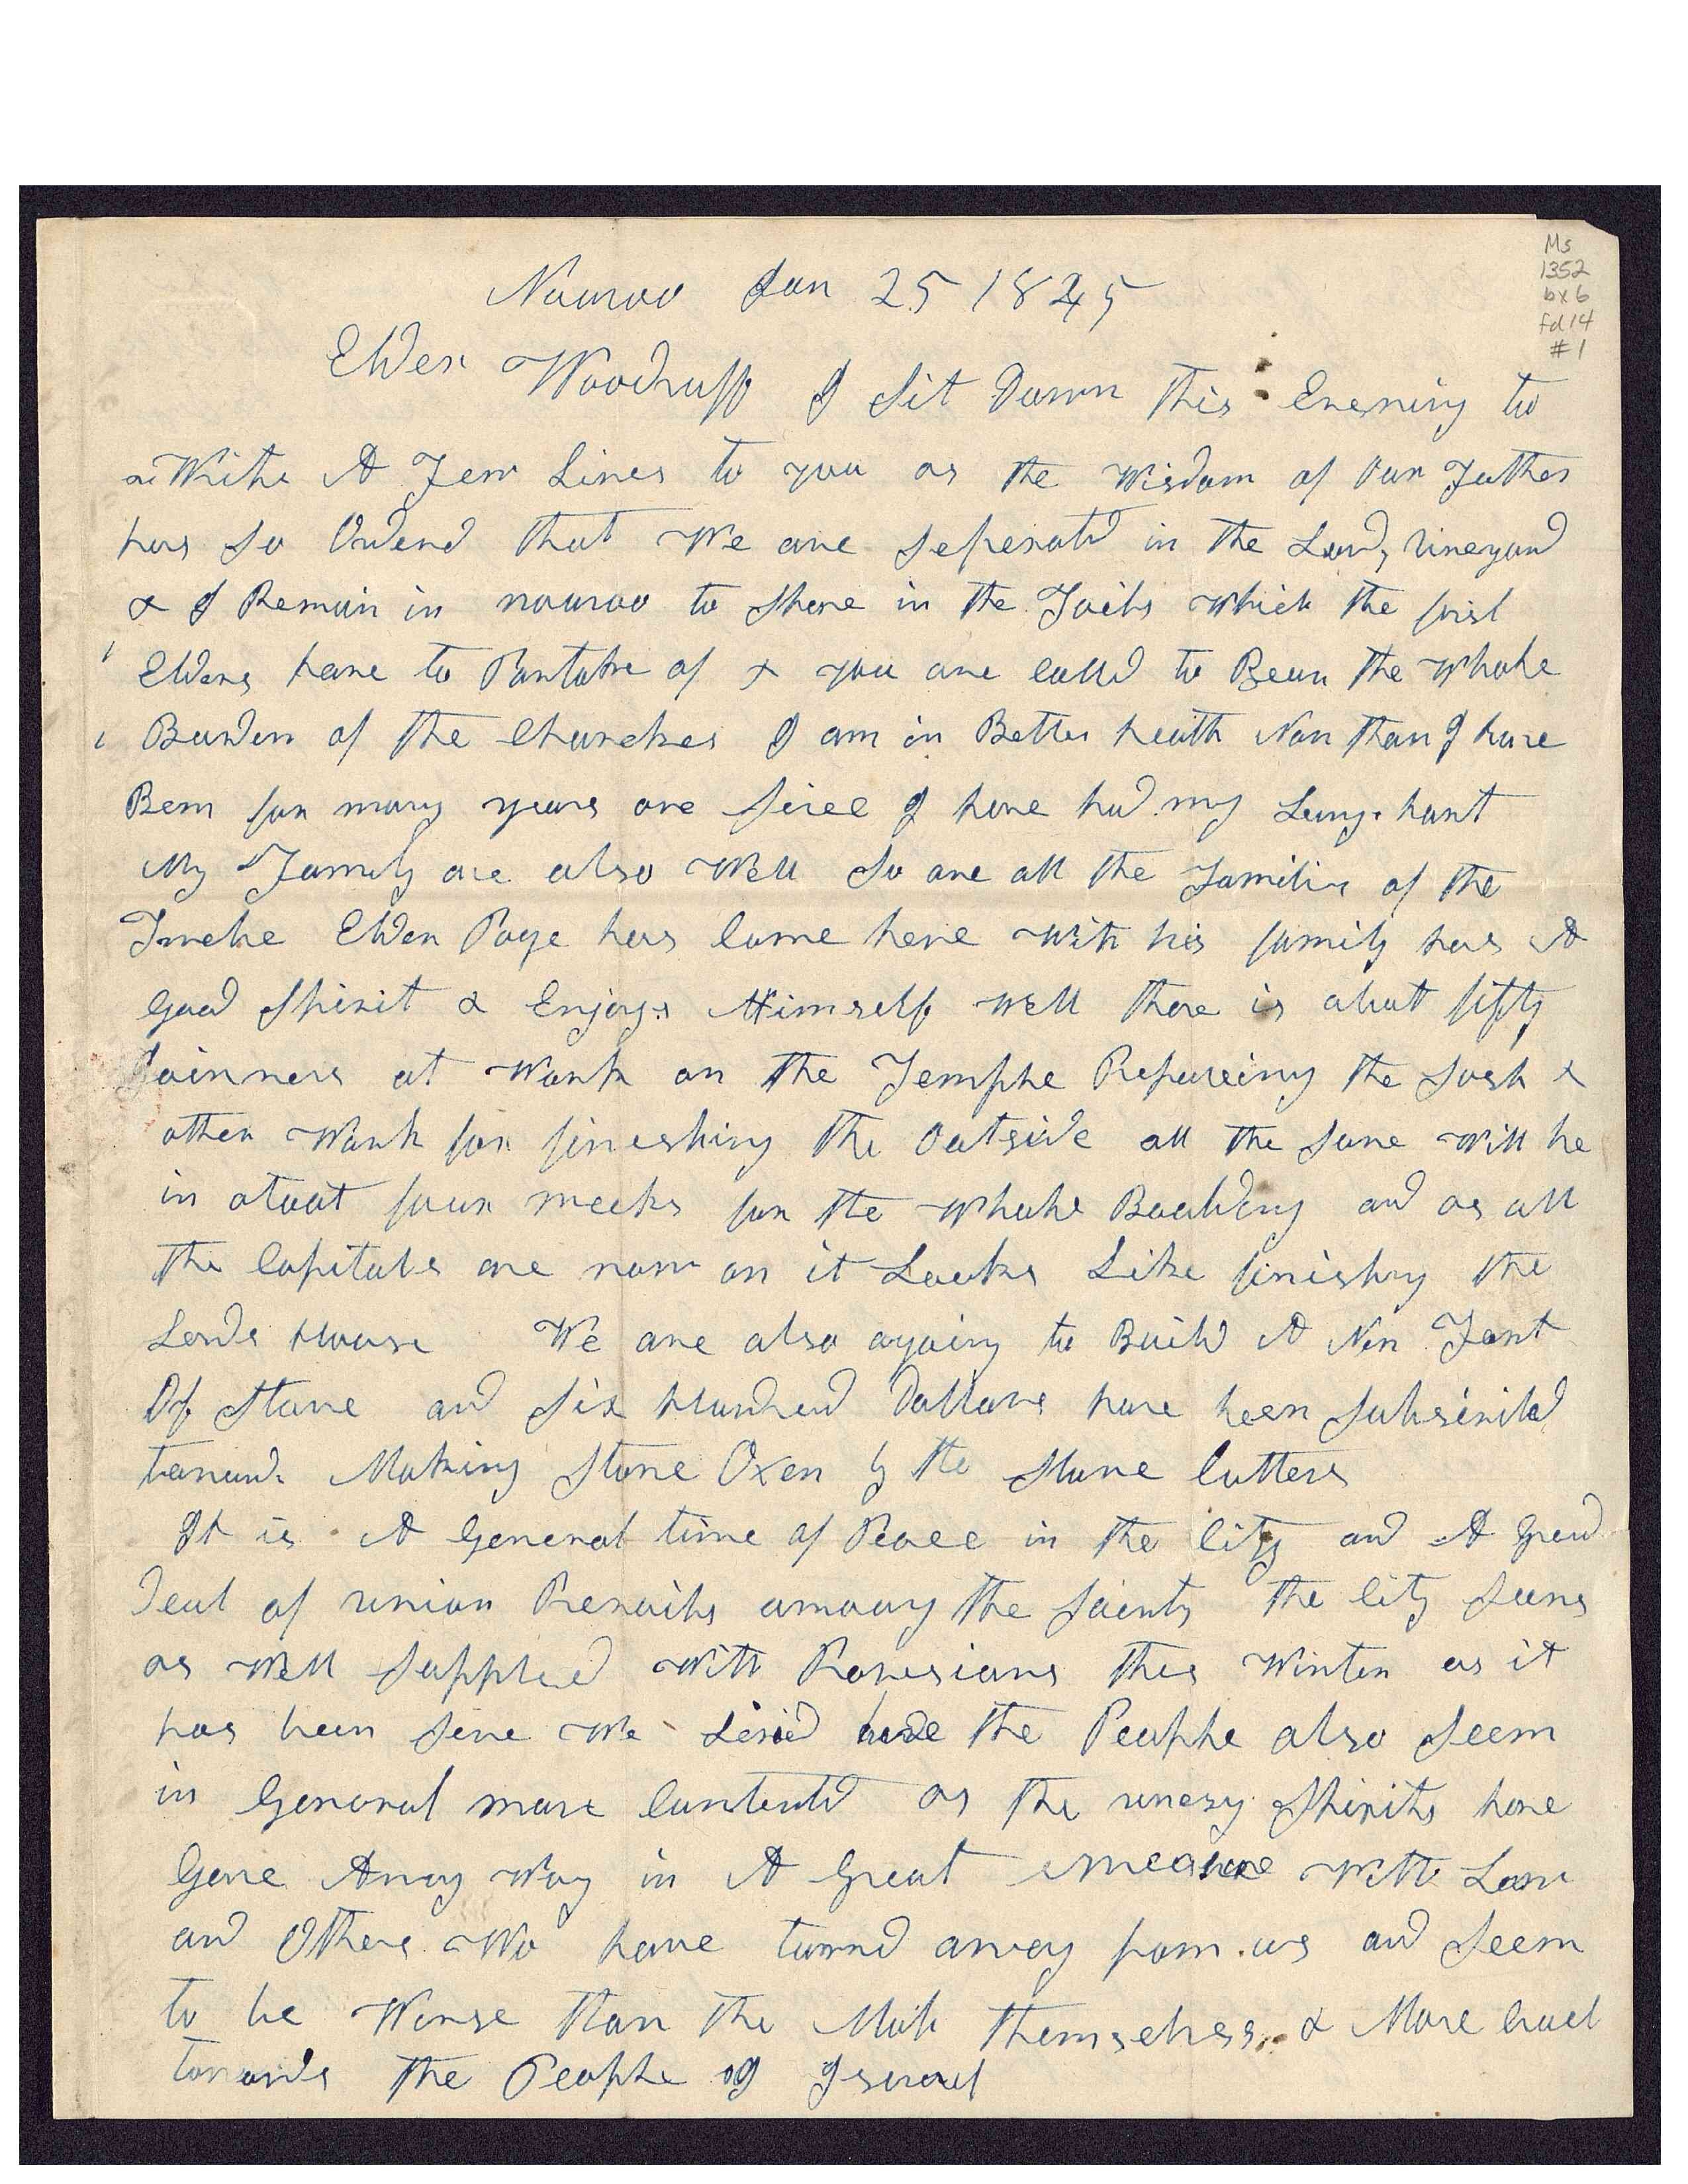 Ms
1352
bx 6
fd 14
#1
Nauvoo Jan 25 1845
Elder Woodruff I Sit Down this Evening to
Write A Few Lines to you as the Wisdom of Our Father
has So Ordend that We are Seperatd in the Lords vineyard
& I Remain in nauvoo to Share in the Toils which the first
Elders have to Partake of & you are Calld to Bear the Whole
Burden of the Churches I am in Better heath Now than I have
Been for many years ore Since I have had my Lungs hurt
My Family are also Well So are all the Familis of the
Twelve Elder Page has Come here With his family has A
good Spirit & Enjoys Himself Well thare is about fifty
Joinners at Work on the Temple Prepareing the Sash &
other Work for fineshing the Outside all the Same Will be
in about four weeks for the Whole Building and as all
the Capitals are now on it Looks Like finishing the
Lords House We are also agoing to Build A New Font
Of Stone and Six Hundred Dollars have been Subscribd
towards Making Stone Oxen by the Stone Cutters
It is A General time of Peace in the City and A great
Deal of union Prevails among the Saints the City Seems
as Well Supplied With Provesions this Winter as it
has been Sene We Lived here the People also Seem
in General more Contentd as the unesy Spirits have
Gone Away Way in A Great measure With Law
and Others Who have turnd away from us and Seem
to be Worse than the Mob themselves & More Cruel
towards the People of Iserael